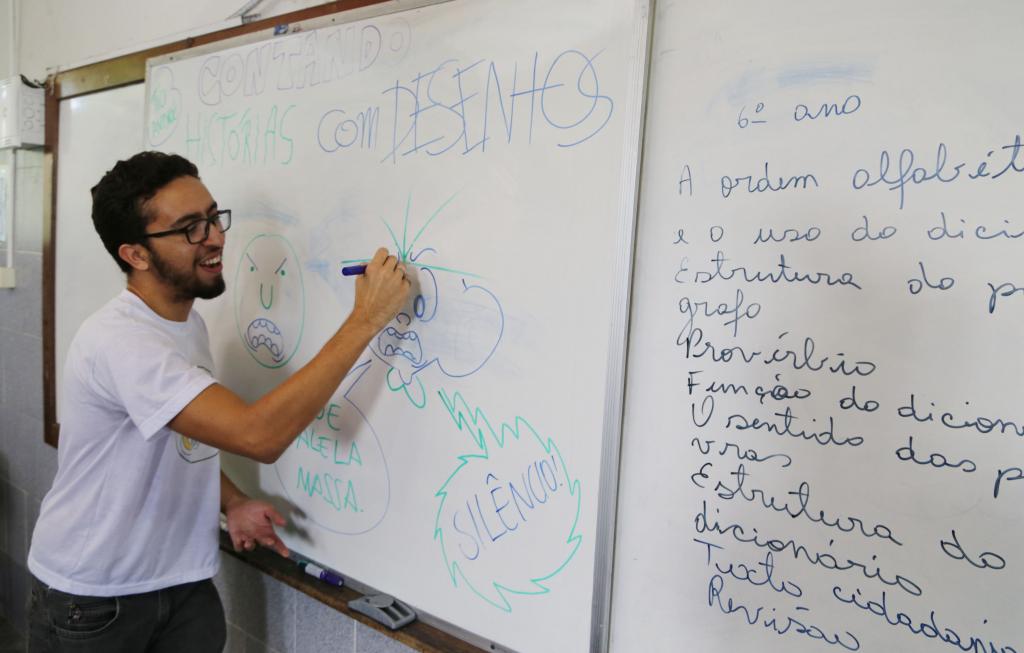 CONTANDO
HISTÓRIAS
COM DESENHOS
MASSA.
SILÊNCIO!
6º ano
A ordem alfabét
e o uso do dici
Estrutura do p
grafo
Provérbio
Função do dicion
O sentido das p
vras
Estrutura do
dicionário
Texto cidadania
Revisão